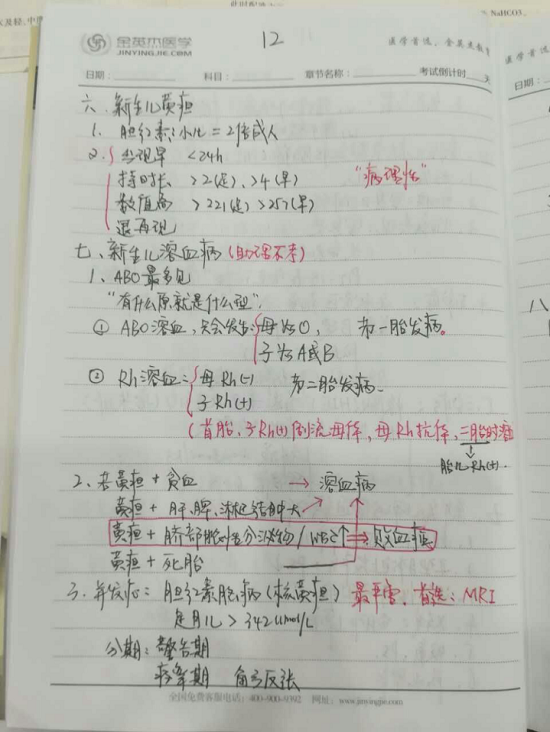 此时配
NaHCO3.
金英杰医学
JINYINGJIE.COM
12
医学首选，金英杰教
日期：
科目：
章节名称：
考试倒计时 天
日期：
六、新生儿黄疸
1. 胆红素：小儿=2倍成人
2. 出现早 <24h
持时长 >2(足)、>4(早)
数值高 >221(足) >257(早)
退再现
"病理性"
七、新生儿溶血病 (助理不考)
1、ABO最多见
"有什么原就是什么型".
① ABO溶血，只会发生：母为O， 第一胎发病。
子为A或B
② Rh溶血：母Rh(-) 第二胎发病.
子Rh(+)
(首胎、子Rh(+)倒流母体，母Rh抗体，二胎时溶
胎儿Rh(+).
2、若黄疸+贫血 → 溶血病
黄疸+肝、脾、淋巴结肿大
黄疸+脐部脓性分泌物/WBC↑ ⇒ 败血症
黄疸+死胎
3、并发症：胆红素脑病(核黄疸) 最严重、首选：MRI
足月儿>342umol/L
分期：警告期
痉挛期 角弓反张
全国免费客服电话：400-900-9392 网址：www.jinyingjie.com
八